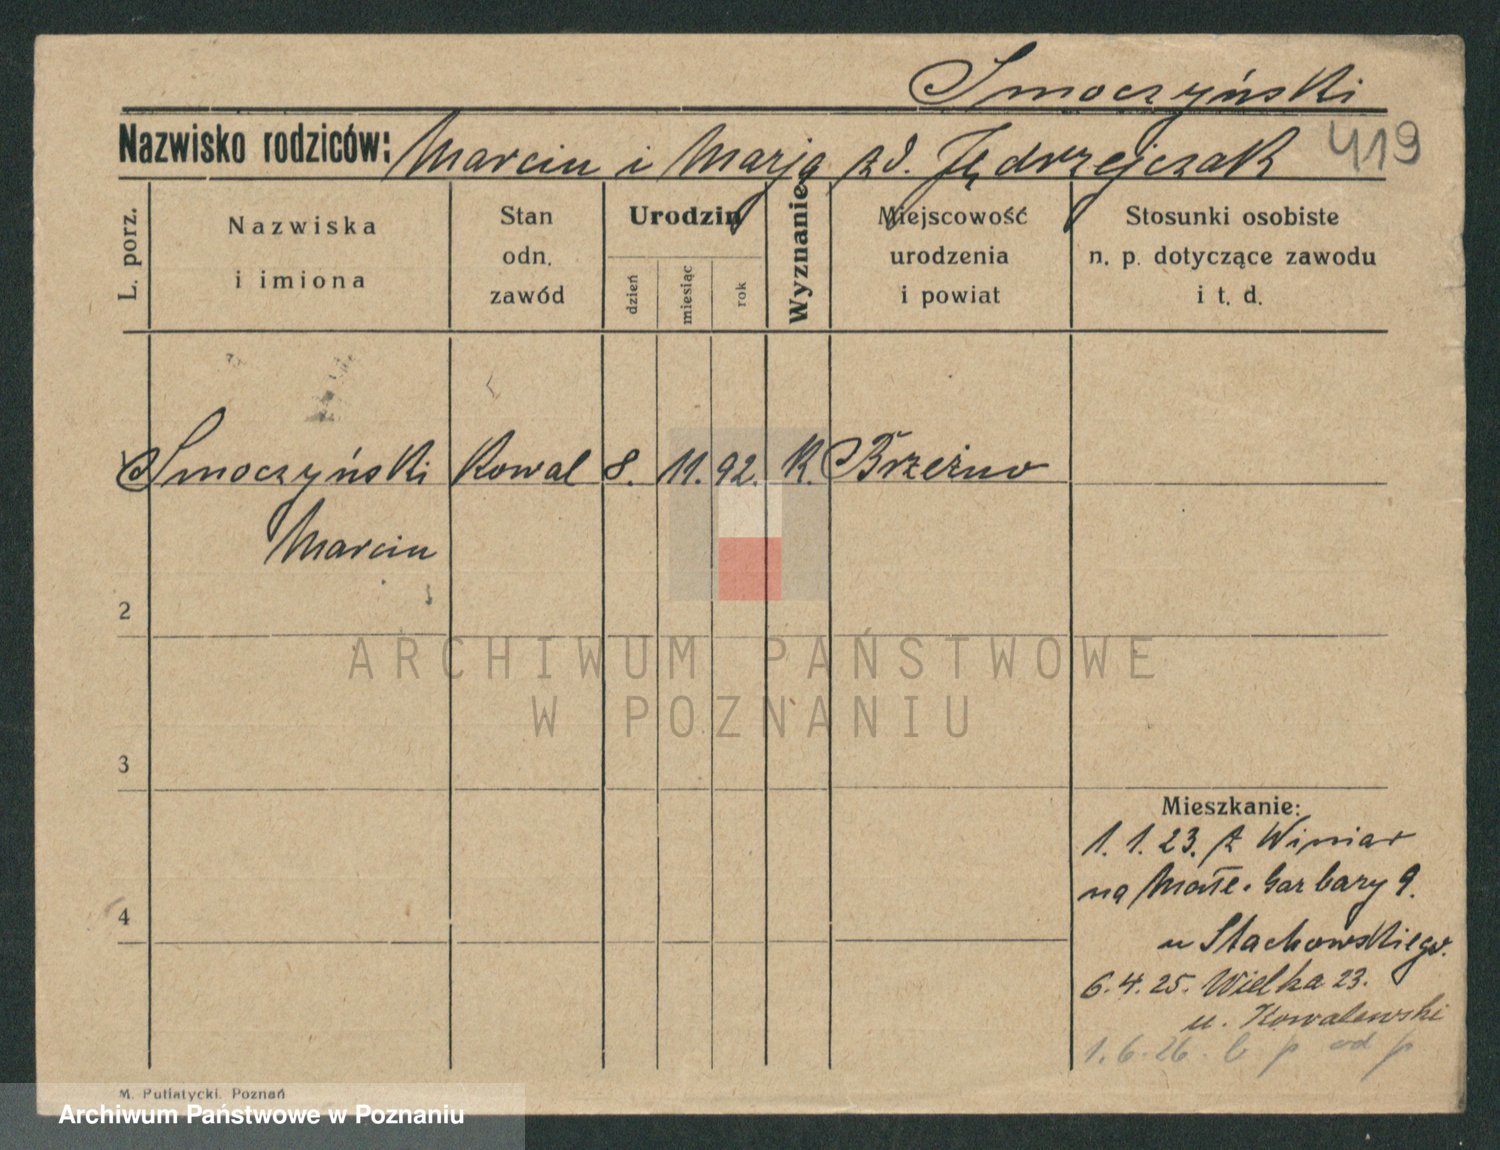 Smoczyński
Nazwisko rodziców: Marcin i Marja zd. Jędrzejczak 419
L. porz.
Nazwiska i imiona
Stan odn. zawód
Urodzin
dzień
miesiąc
rok
Wyznanie
Miejscowość urodzenia i powiat
Stosunki osobiste n. p. dotyczące zawodu i t. d.
Smoczyński Kowal 8. 11. 92. K. Brzeźno
Marcin
2
3
4
Mieszkanie:
1. 1. 23. z Winiar
na Małe. Garbary 9.
u Stachowskiego.
6. 4. 25. Wielka 23.
u. Kowalewski
1. 6. 26. b p od p
M. Putiatycki. Poznań
ARCHIWUM PAŃSTWOWE
W POZNANIU
Archiwum Państwowe w Poznaniu